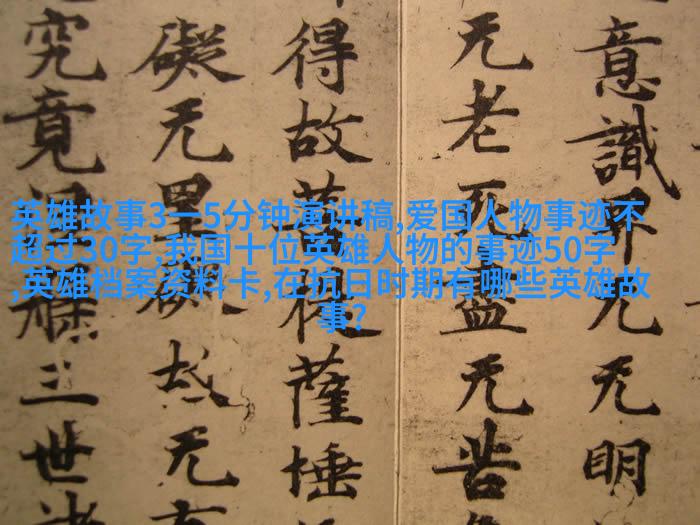 英雄故事3一5分钟演讲稿,爱国人物事迹不
超过30字,我国十位英雄人物的事迹50字
,英雄档案资料卡,在抗日时期有哪些英雄故
事?
意識界无无明
无老死盡无苦
得故菩提薩埵
礙无罣礙故无
究竟涅槃三世諸